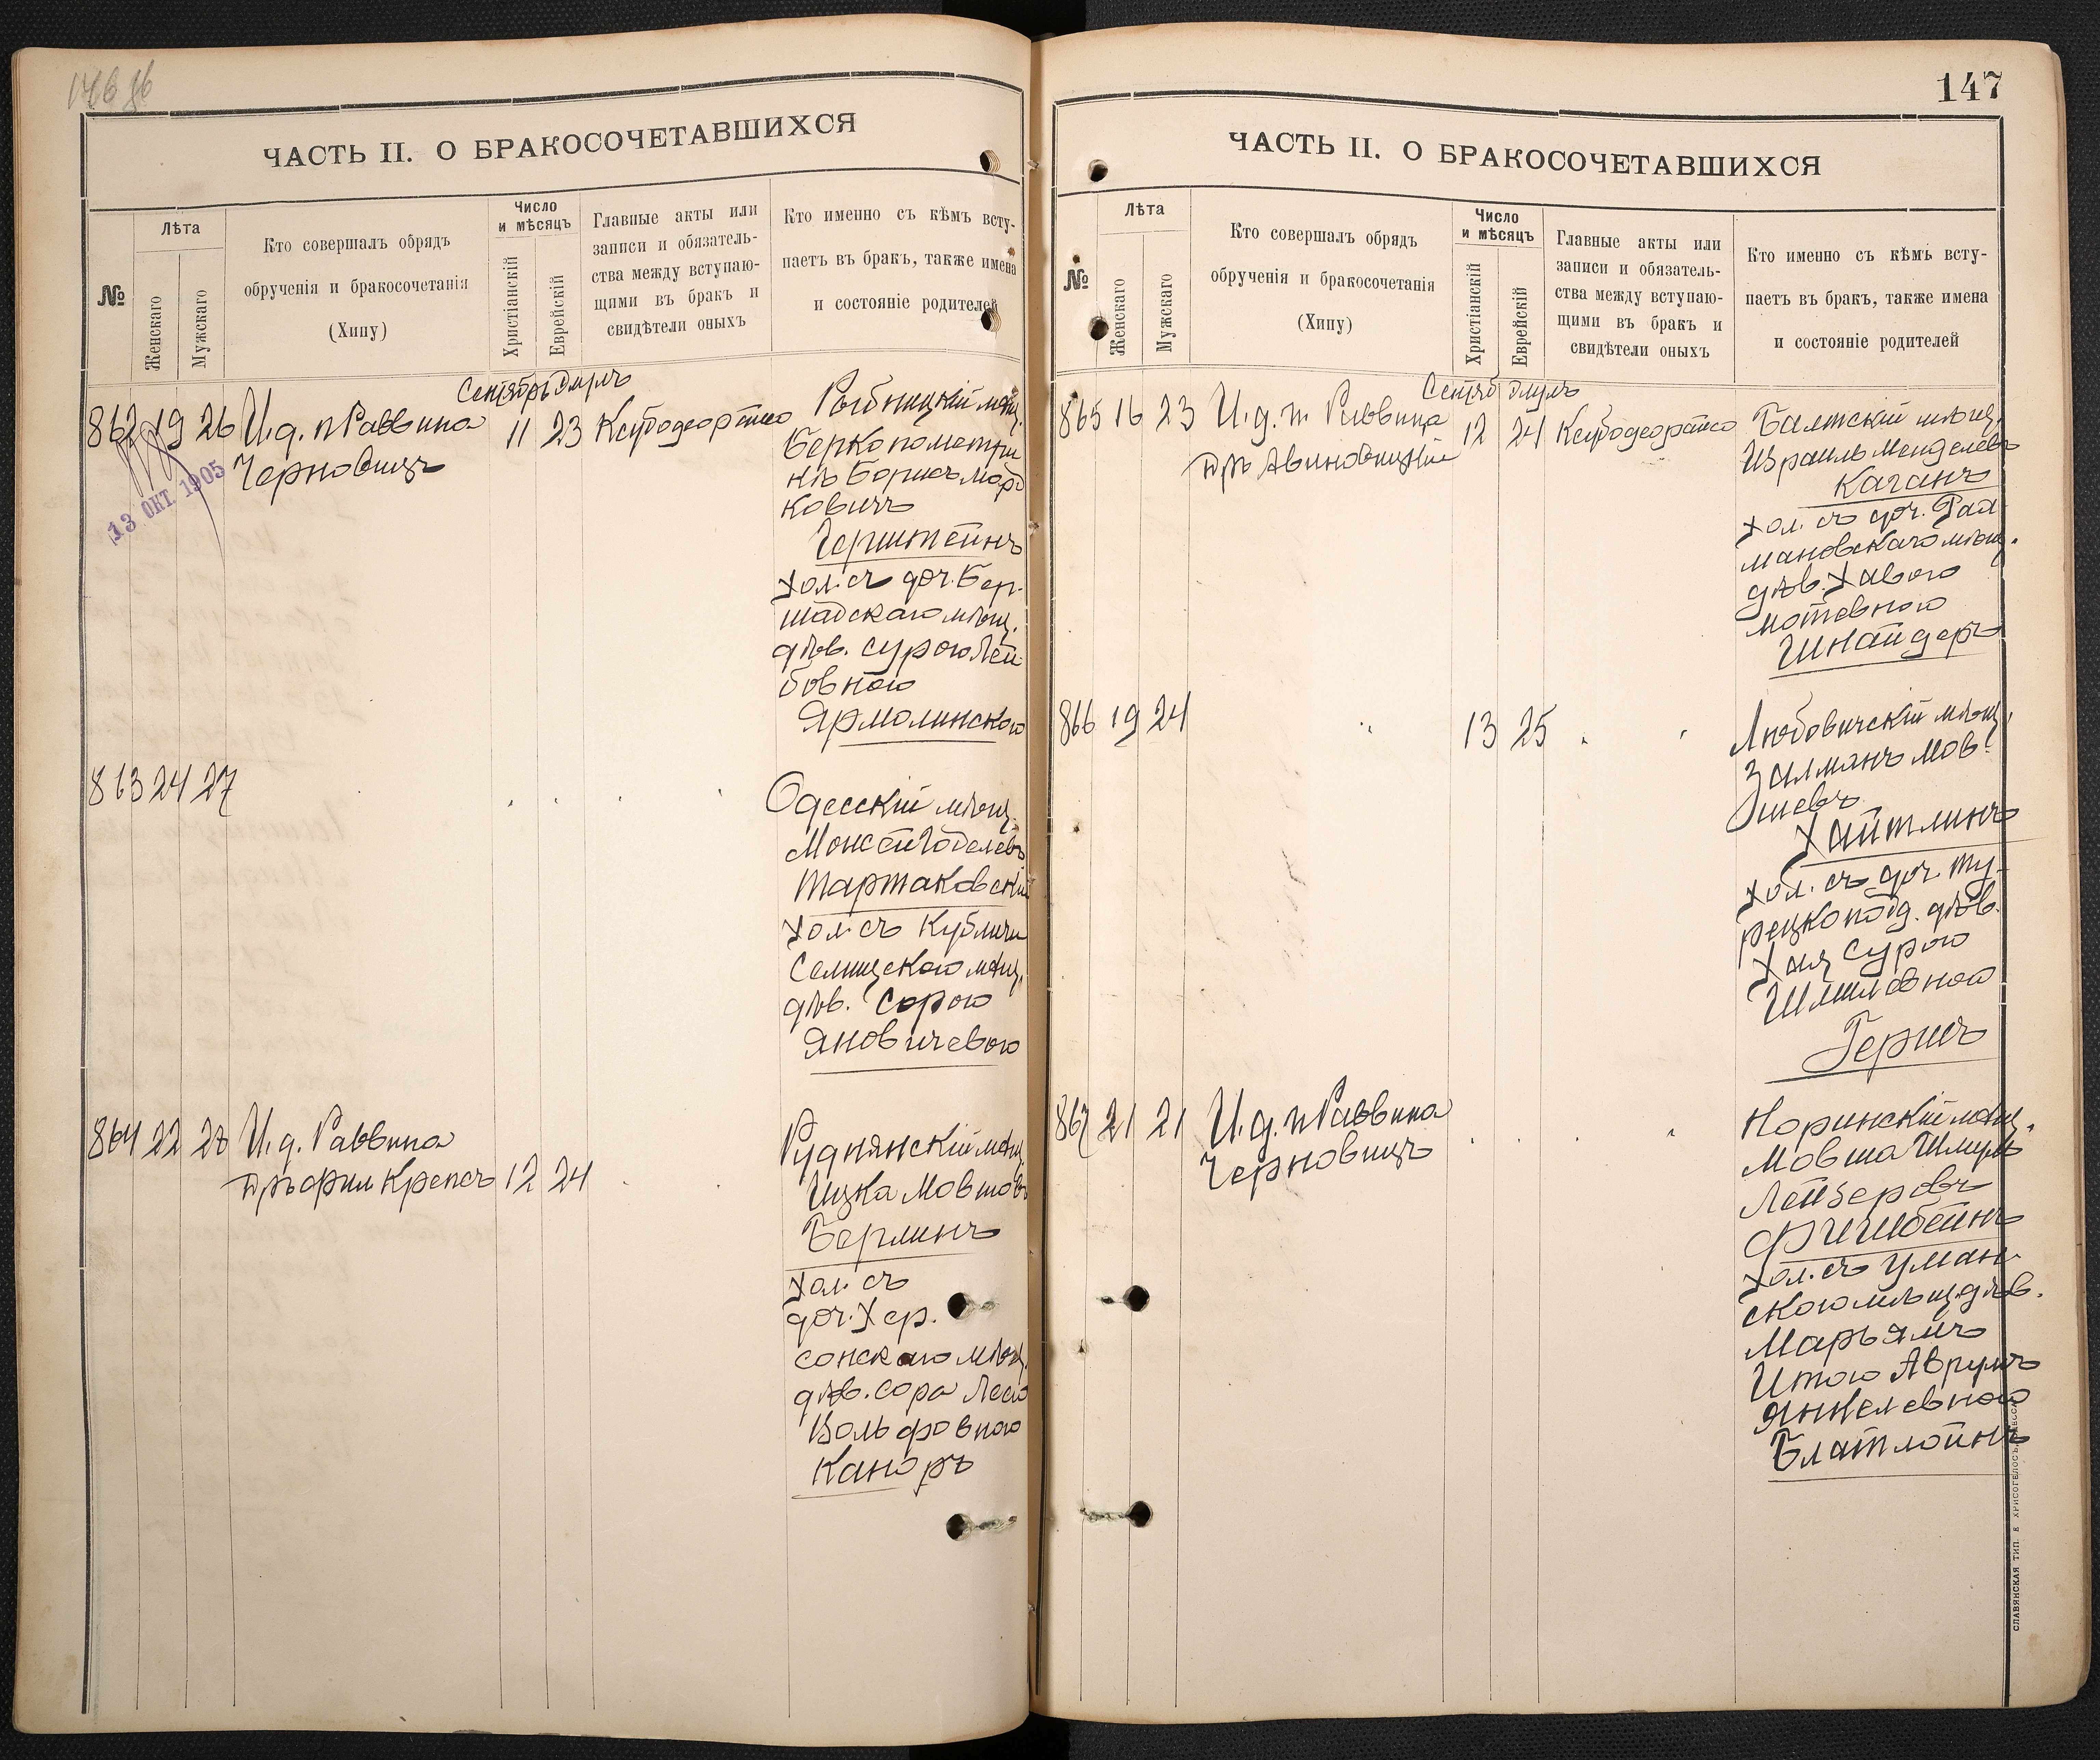 146 об
ЧАСТЬ II. О БРАКОСОЧЕТАВШИХСЯ
№
Лѣта
Женскаго
Мужскаго
Кто совершалъ обрядъ
обрученія и бракосочетанія
(Хипу)
Число
и мѣсяцъ
Христіанскій
Еврейскій
Главные акты или
записи и обязатель-
ства между вступаю-
щими въ бракъ и
свидѣтели оныхъ
Кто именно съ кѣмъ всту-
паетъ въ бракъ, также имена
и состояніе родителей
Сентябрь Элулъ
862 19 26 И.д. п Раввина 11 23
Черновицъ
13 ОКТ 1905
Рыбницкій мѣщ.
Берко пометри
кѣ БорисъМорд
ковичъ
Герштейнъ
хол. съ доч. Бер-
шадскаго мѣщ.
дѣв. Сурою Лей
бовною
Ярмолинскою
863 24 27
Одесскій мѣщ.
Моисей Годелевъ
Тартаковскій
хол. съ Кубличи
Селищскою мѣщ.
дѣв. Сорою
Яновичевою
864 22 28 И.д. Раввина
Дръ фил Крепсъ 12 24
Руднянскій мѣщ.
Ицка Мовшовъ
Берлинъ
хол. съ
доч. Хер.
сонскаго мѣщ.
дѣв. Сора Лею
Вольфовною
Каноръ
147
ЧАСТЬ II. О БРАКОСОЧЕТАВШИХСЯ
№
Лѣта
Женскаго
Мужскаго
Кто совершалъ обрядъ
обрученія и бракосочетанія
(Хипу)
Число
и мѣсяцъ
Христіанскій
Еврейскій
Главные акты или
записи и обязатель-
ства между вступаю-
щими въ бракъ и
свидѣтели оныхъ
Кто именно съ кѣмъ всту-
паетъ въ бракъ, также имена
и состояніе родителей
Сентяб Элулъ
865 16 23 И.д. п Раввина 12 24
Дръ Авиновицкій
Балтский мѣщ.
Израиль Менделевъ
Каганъ
хол. съ доч. Раш
мановскаго мѣщ.
дѣв. Хавою
Мотевною
Шнайдеръ
866 19 24 13 25
Любовичскій мѣщ.
Залманъ Мов
шевъ
Хайтлинъ
хол. съ доч. Ту-
рецкопод. дѣв.
Хая Сурою
Шмилевною
Геришъ
867 21 21 И.д. п Раввина
Черновицъ
Норинскій мѣщ.
Мовша Шмуль
Лейзеровъ
Фишбейнъ
хол. съ Уман
скою мѣщ. дѣв.
Марьямъ
Итою Аврумъ
Янкелевною
Блатлойнъ
СЛАВЯНСКАЯ ТИП. Е. ХРИСОГЕЛОСЪ, ОДЕССА